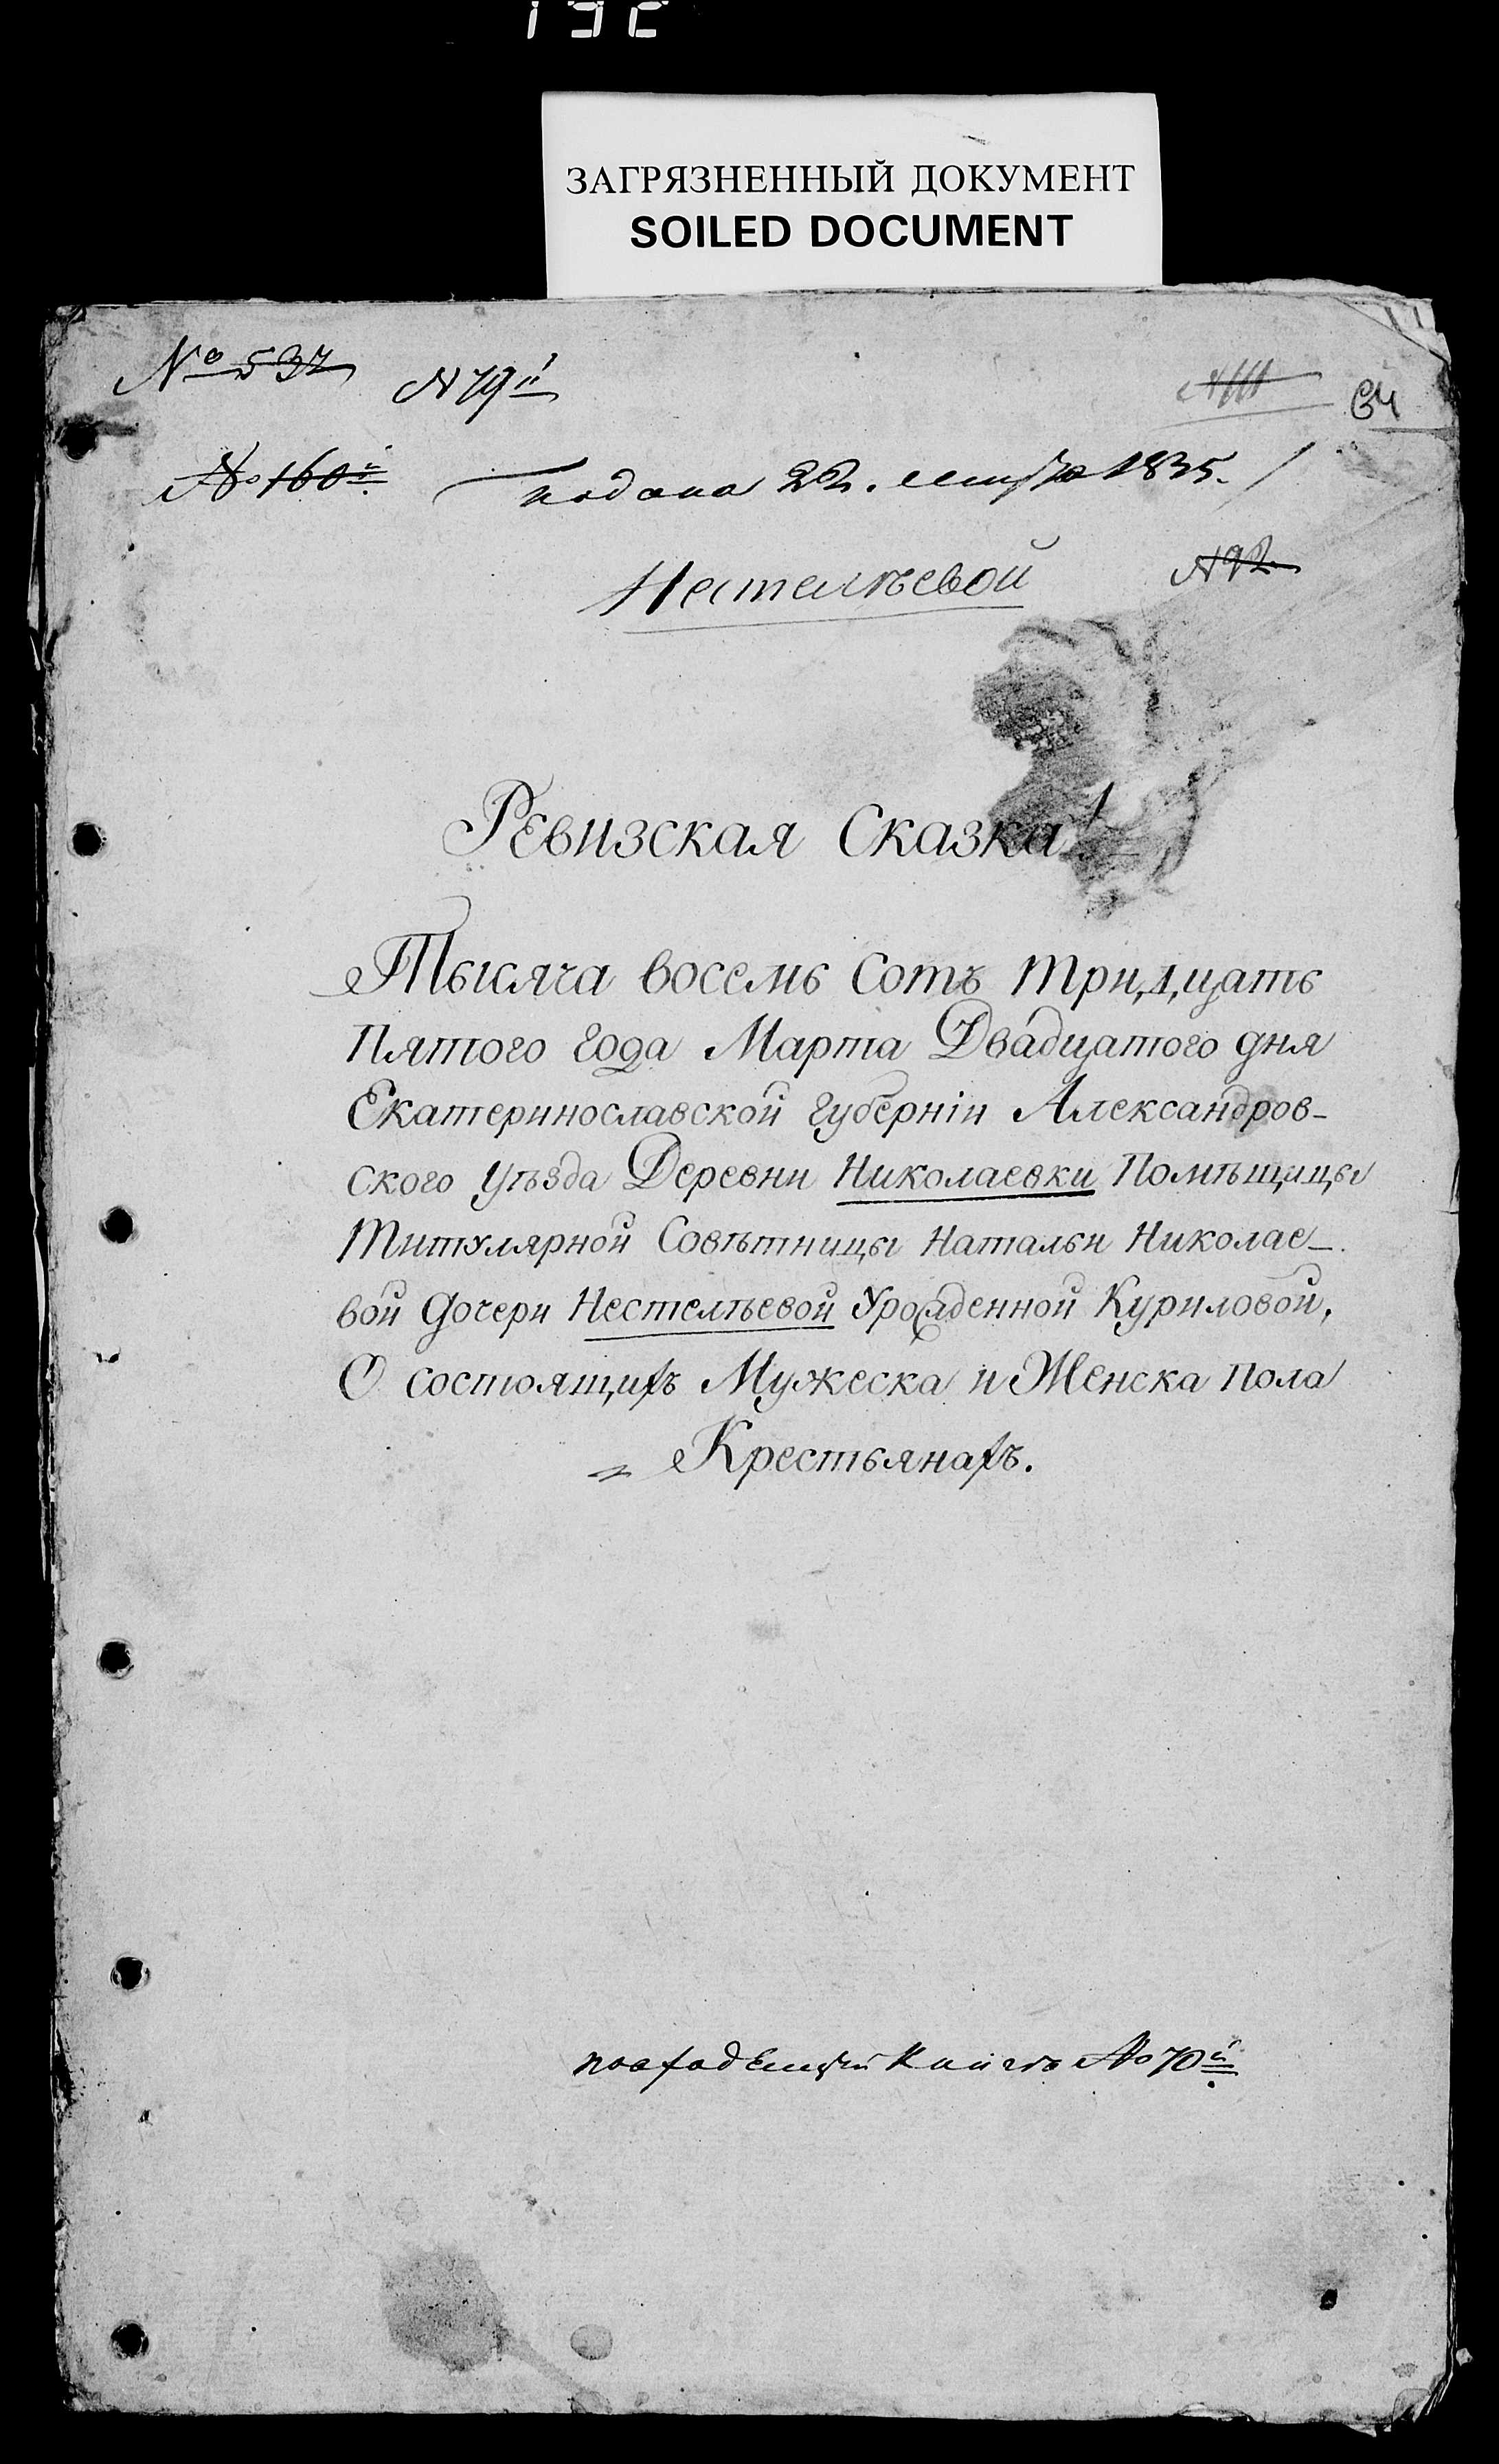 ЗАГРЯЗНЕННЫЙ ДОКУМЕНТ
SOILED DOCUMENT
№ 537
N 79й
64
№ 160й
подана 22. сентября 1835.
Нестелѣевой
N 92
Ревизская Сказка
Тысяча восемь Сотъ Тридцать
Пятого года Марта Двадцатого дня
Екатеринославской губерніи Александров-
ского уѣзда Деревни Николаевки Помѣщицы
Титулярной Совѣтницы Натальи Николае-
вой дочери Нестелѣевой Урожденной Куриловой,
О состоящихъ Мужеска и Женска пола
Крестьянахъ.
повходящей Книгѣ № 70й